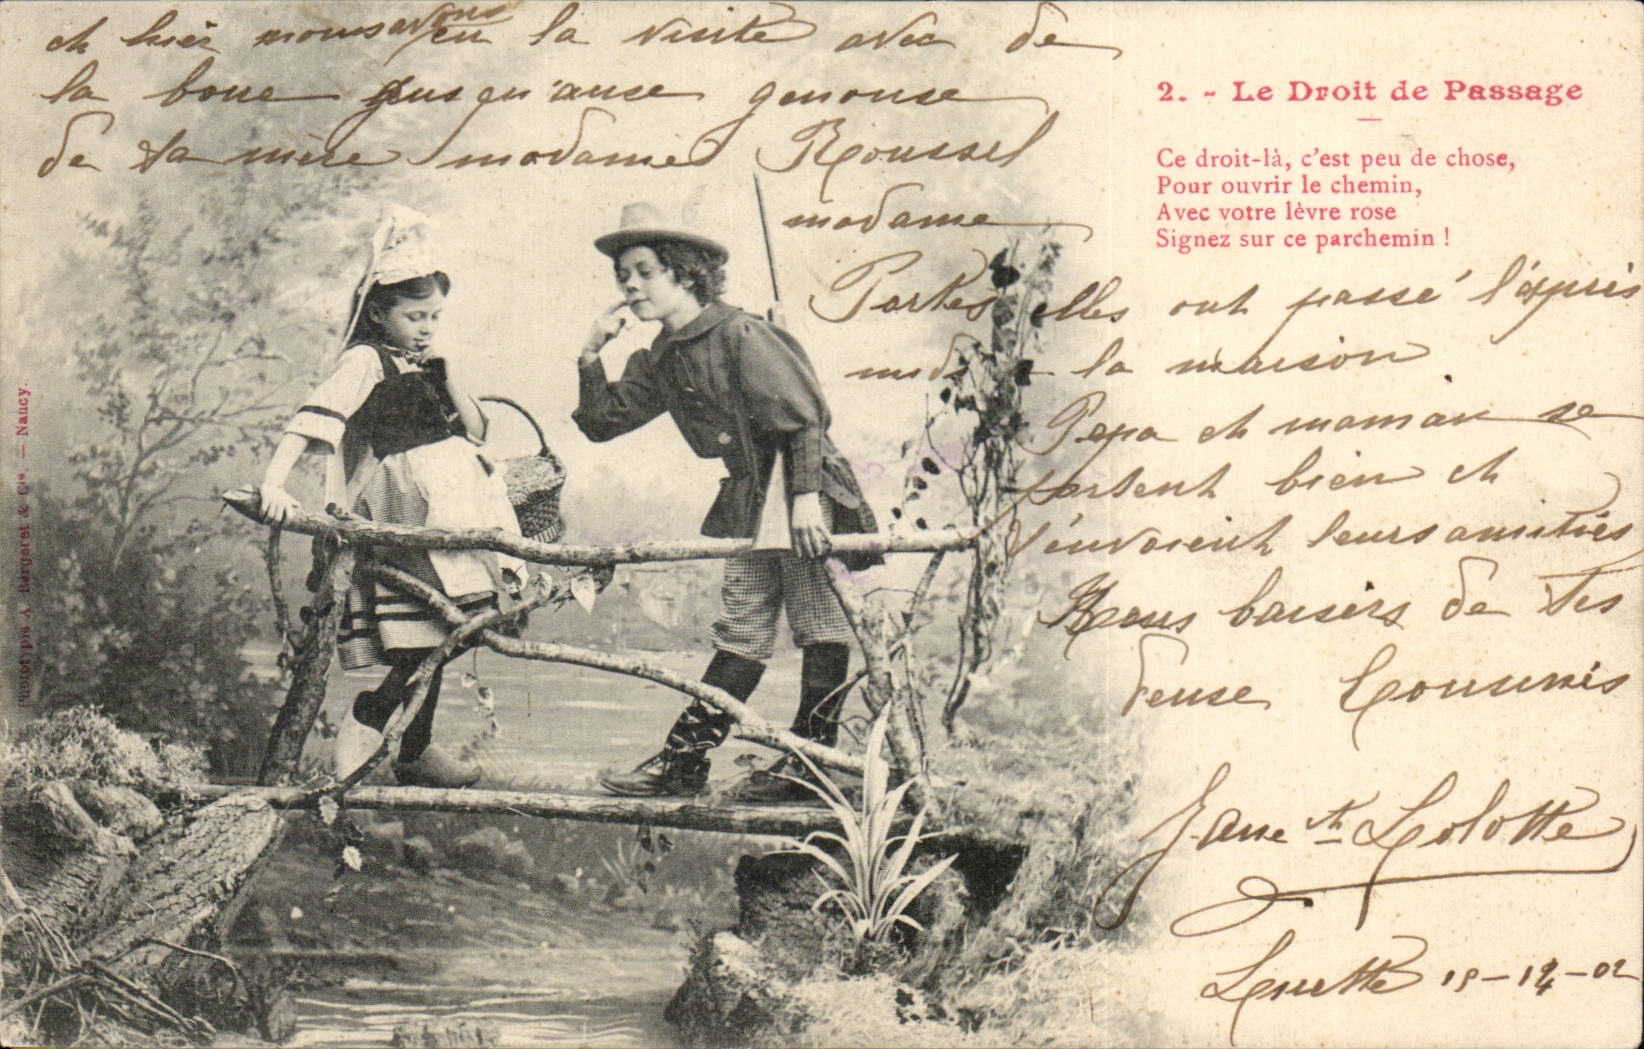 et hier nous avons eu la visite avec de
la boue jusqu'ause genouse
de ta mère madame Roussel
madame
Partes elles ont passé l'après
midi a la maison
Papa et maman se
portent bien et
t'envoient leurs amitiés
Bons baisers de tes
deuse Cousines
Jane et Lolotte
15-12-02
2. - Le Droit de Passage
Ce droit-là, c'est peu de chose,
Pour ouvrir le chemin,
Avec votre lèvre rose
Signez sur ce parchemin !
Phototypie A. Bergeret & Cie. — Nancy.